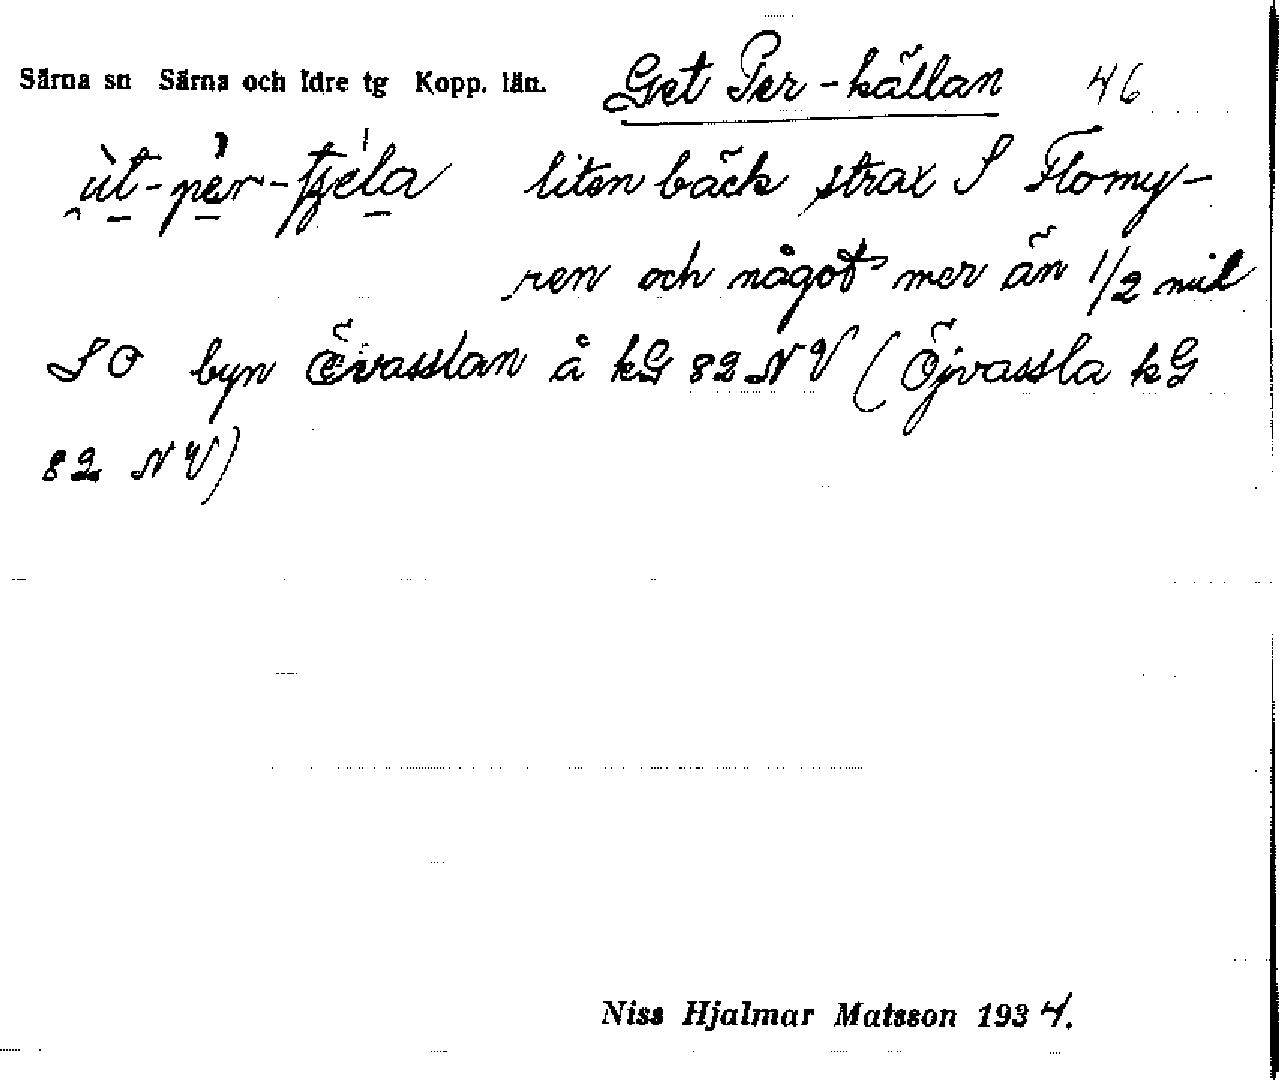 Särna sn Särna och Idre tg Kopp. län. Get Per-källan 46
liten bäck strax S Flomy-
ren och något mer än 1/2 mil
SO byn Övasslan å kG 82 NV (Öjvassla kG
82 NV)
Niss Hjalmar Matsson 1934.